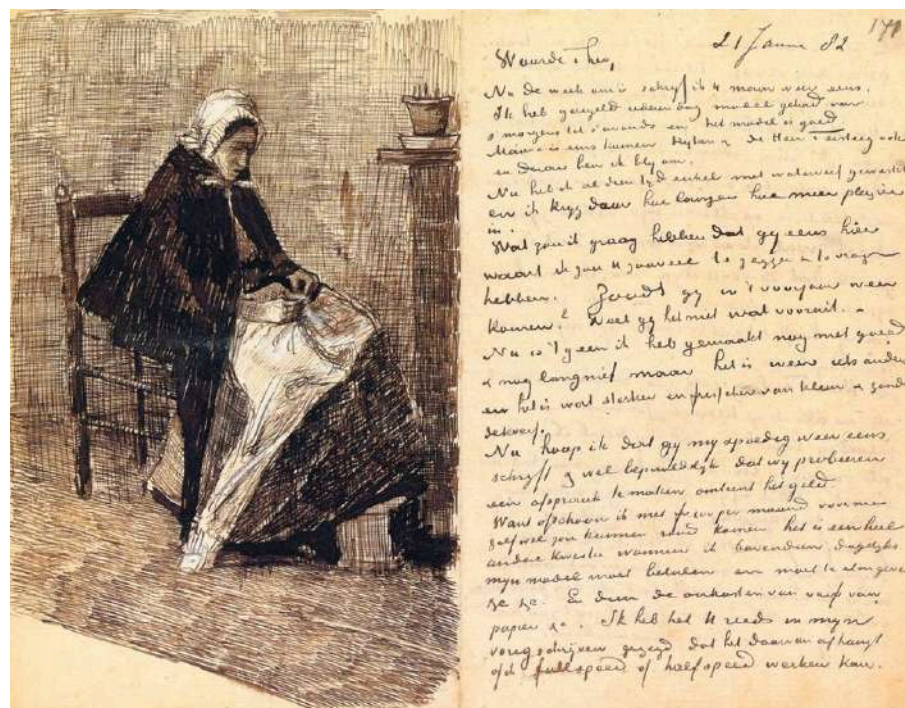 21 Januar 82 171
Waarde Theo,
Na de week om is schryf ik U maar weer eens.
Ik heb geregeld iederen dag model gehad van
s morgens tot s'avonds en het model is goed
Mauve is eens komen kyken & de Heer Tersteeg ook
en daar ben ik bly om.
Nu heb ik al dien tyd enkel met waterverf gewerkt
en ik kryg daar hoe langer hoe meer plezier
in.
Wat zou ik graag hebben dat gy eens hier
waart ik zou U zooveel te zeggen & te vragen
hebben. Zoudt gy in 't voorjaar weer
komen? Doet gy het met wat vooruit.
Nu is 't geen ik heb gemaakt nog niet goed
& nog lang niet maar het is weer iets anders
en het is wat sterker en frisscher van kleur &
Nu hoop ik dat gy my spoedig weer eens
schryft & wel bepaaldelyk dat wy probeeren
een afspraak te maken omtrent het geld.
Want ofschoon ik met per maand voor me
zelf wel zou kunnen rond komen het is een heel
andere kwestie wanneer ik bovendien dagelyks
myn model moet betalen en moet te eten geven
&c &c. En dan de onkosten van verf van
papier &c. Ik heb het U reeds in myn
vorig schryven gezegd dat het daarvan afhangt
of ik full speed of half speed werken kan.